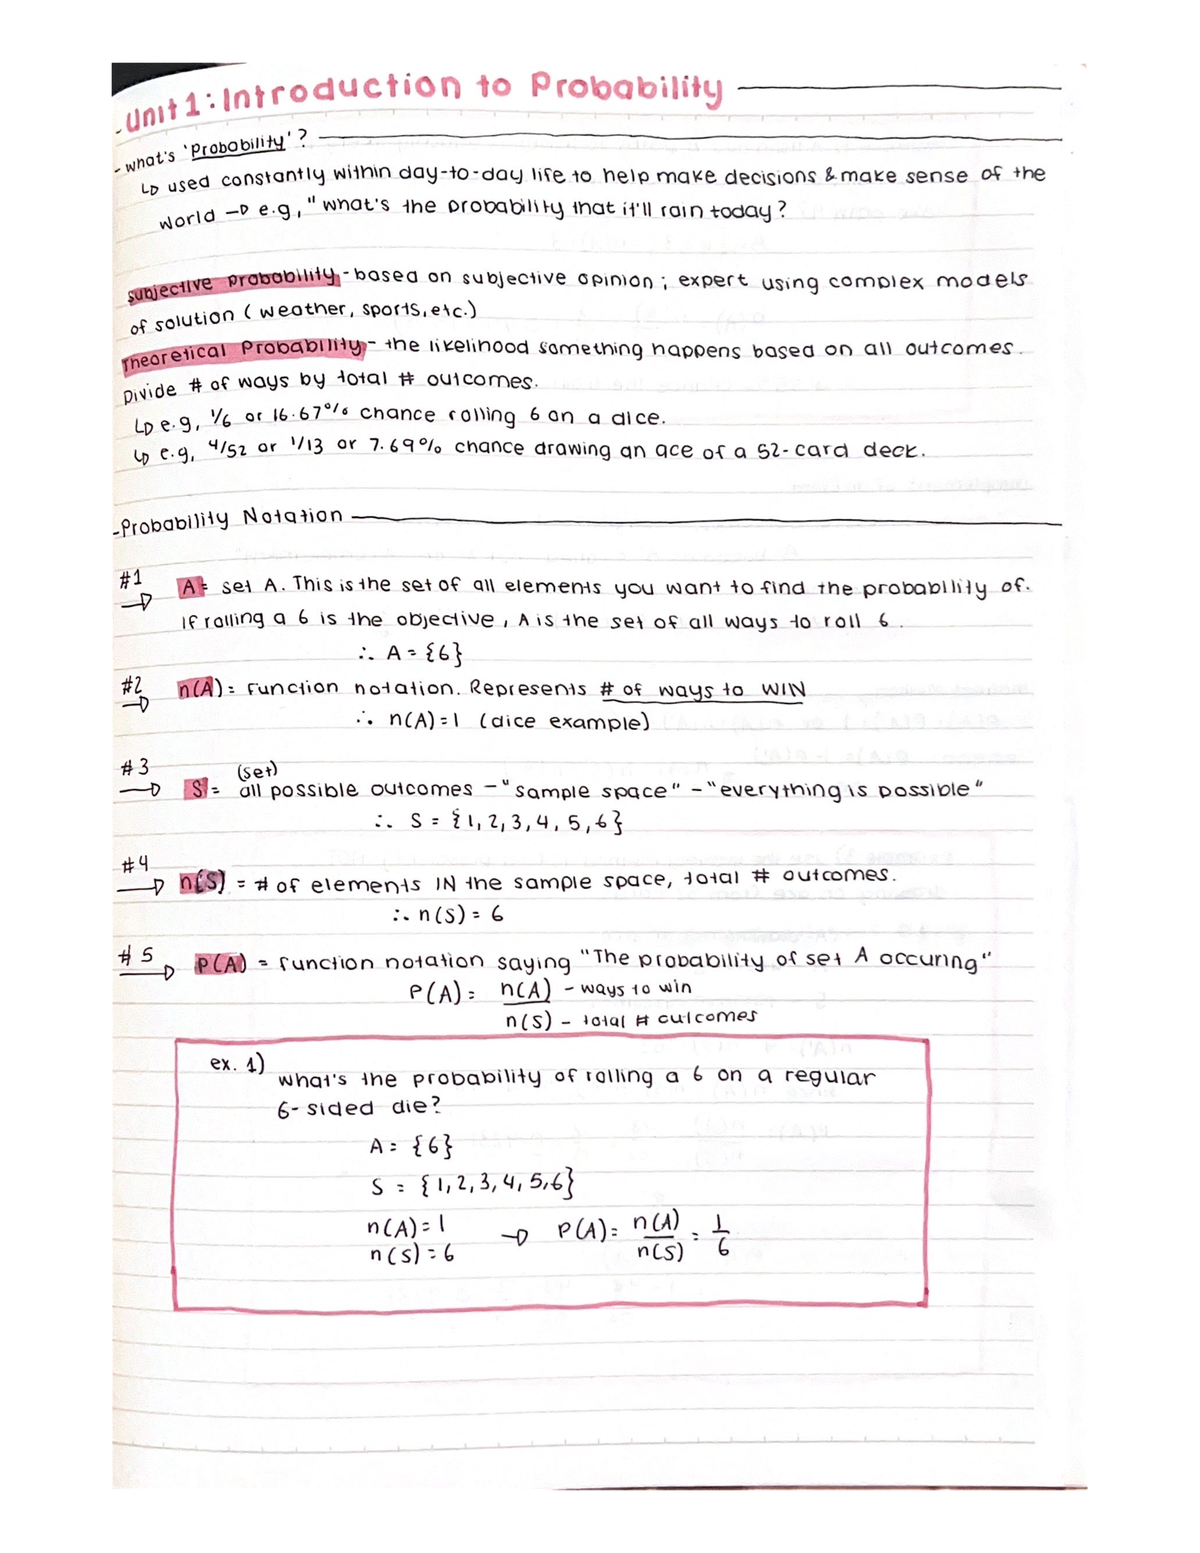 -Unit 1: Introduction to Probability
- what's 'Probability'?
↳ used constantly within day-to-day life to help make decisions & make sense of the
world → e.g, "what's the probability that it'll rain today?
subjective probability - based on subjective opinion; expert using complex models
of solution (weather, sports, etc.)
Theoretical Probability - the likelihood something happens based on all outcomes.
Divide # of ways by total # outcomes.
↳ e.g, 1/6 or 16.67% chance rolling 6 on a dice.
↳ e.g, 4/52 or 1/13 or 7.69% chance drawing an ace of a 52-card deck.
-Probability Notation
#1 → A = set A. This is the set of all elements you want to find the probability of.
If rolling a 6 is the objective, A is the set of all ways to roll 6.
∴ A = {6}
#2 → n(A) = function notation. Represents # of ways to WIN
∴ n(A) = 1 (dice example)
#3 → S = (set)
all possible outcomes - "sample space" - "everything is possible"
∴ S = {1, 2, 3, 4, 5, 6}
#4 → n(S) = # of elements IN the sample space, total # outcomes.
∴ n(S) = 6
#5 → P(A) = function notation saying "The probability of set A occuring"
P(A) = n(A) - ways to win
n(S) - total # outcomes
ex. 1)
what's the probability of rolling a 6 on a regular
6-sided die?
A = {6}
S = {1, 2, 3, 4, 5, 6}
n(A) = 1
n(S) = 6 → P(A) = n(A)/n(S) = 1/6